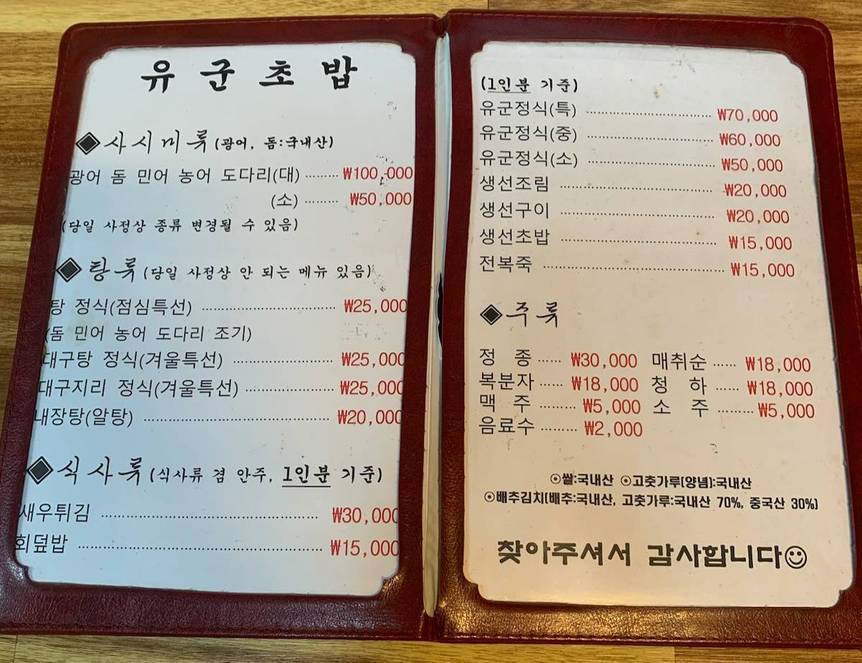 유군초밥
◈사시미류(광어, 돔:국내산)
광어 돔 민어 농어 도다리(대) ........ ₩100,000
(소) ........ ₩50,000
(당일 사정상 종류 변경될 수 있음)
◈탕류(당일 사정상 안 되는 메뉴 있음)
탕 정식(점심특선) ........ ₩25,000
(돔 민어 농어 도다리 조기)
대구탕 정식(겨울특선) ........ ₩25,000
대구지리 정식(겨울특선) ........ ₩25,000
내장탕(알탕) ........ ₩20,000
◈식사류(식사류 겸 안주, 1인분 기준)
새우튀김 ........ ₩30,000
회덮밥 ........ ₩15,000
(1인분 기준)
유군정식(특) ........ ₩70,000
유군정식(중) ........ ₩60,000
유군정식(소) ........ ₩50,000
생선조림 ........ ₩20,000
생선구이 ........ ₩20,000
생선초밥 ........ ₩15,000
전복죽 ........ ₩15,000
◈주류
정 종 ..... ₩30,000 매취순 ..... ₩18,000
복분자 ..... ₩18,000 청 하 ..... ₩18,000
맥 주 ..... ₩5,000 소 주 ..... ₩5,000
음료수 ..... ₩2,000
⊙쌀:국내산 ⊙고춧가루(양념):국내산
⊙배추김치(배추:국내산, 고춧가루:국내산 70%, 중국산 30%)
찾아주셔서 감사합니다☺